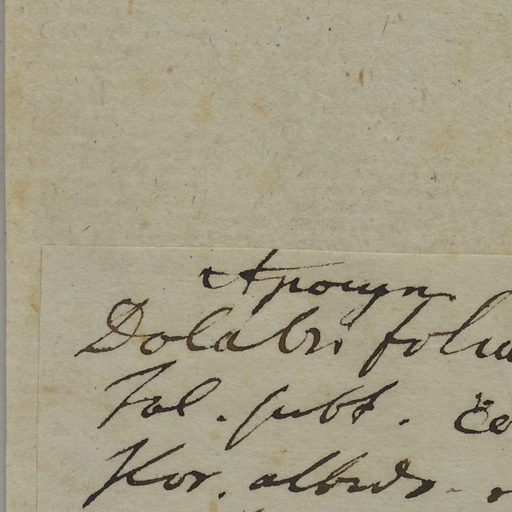 Apocyn
Dolabri folia
Fol. subt.
Flor. albids